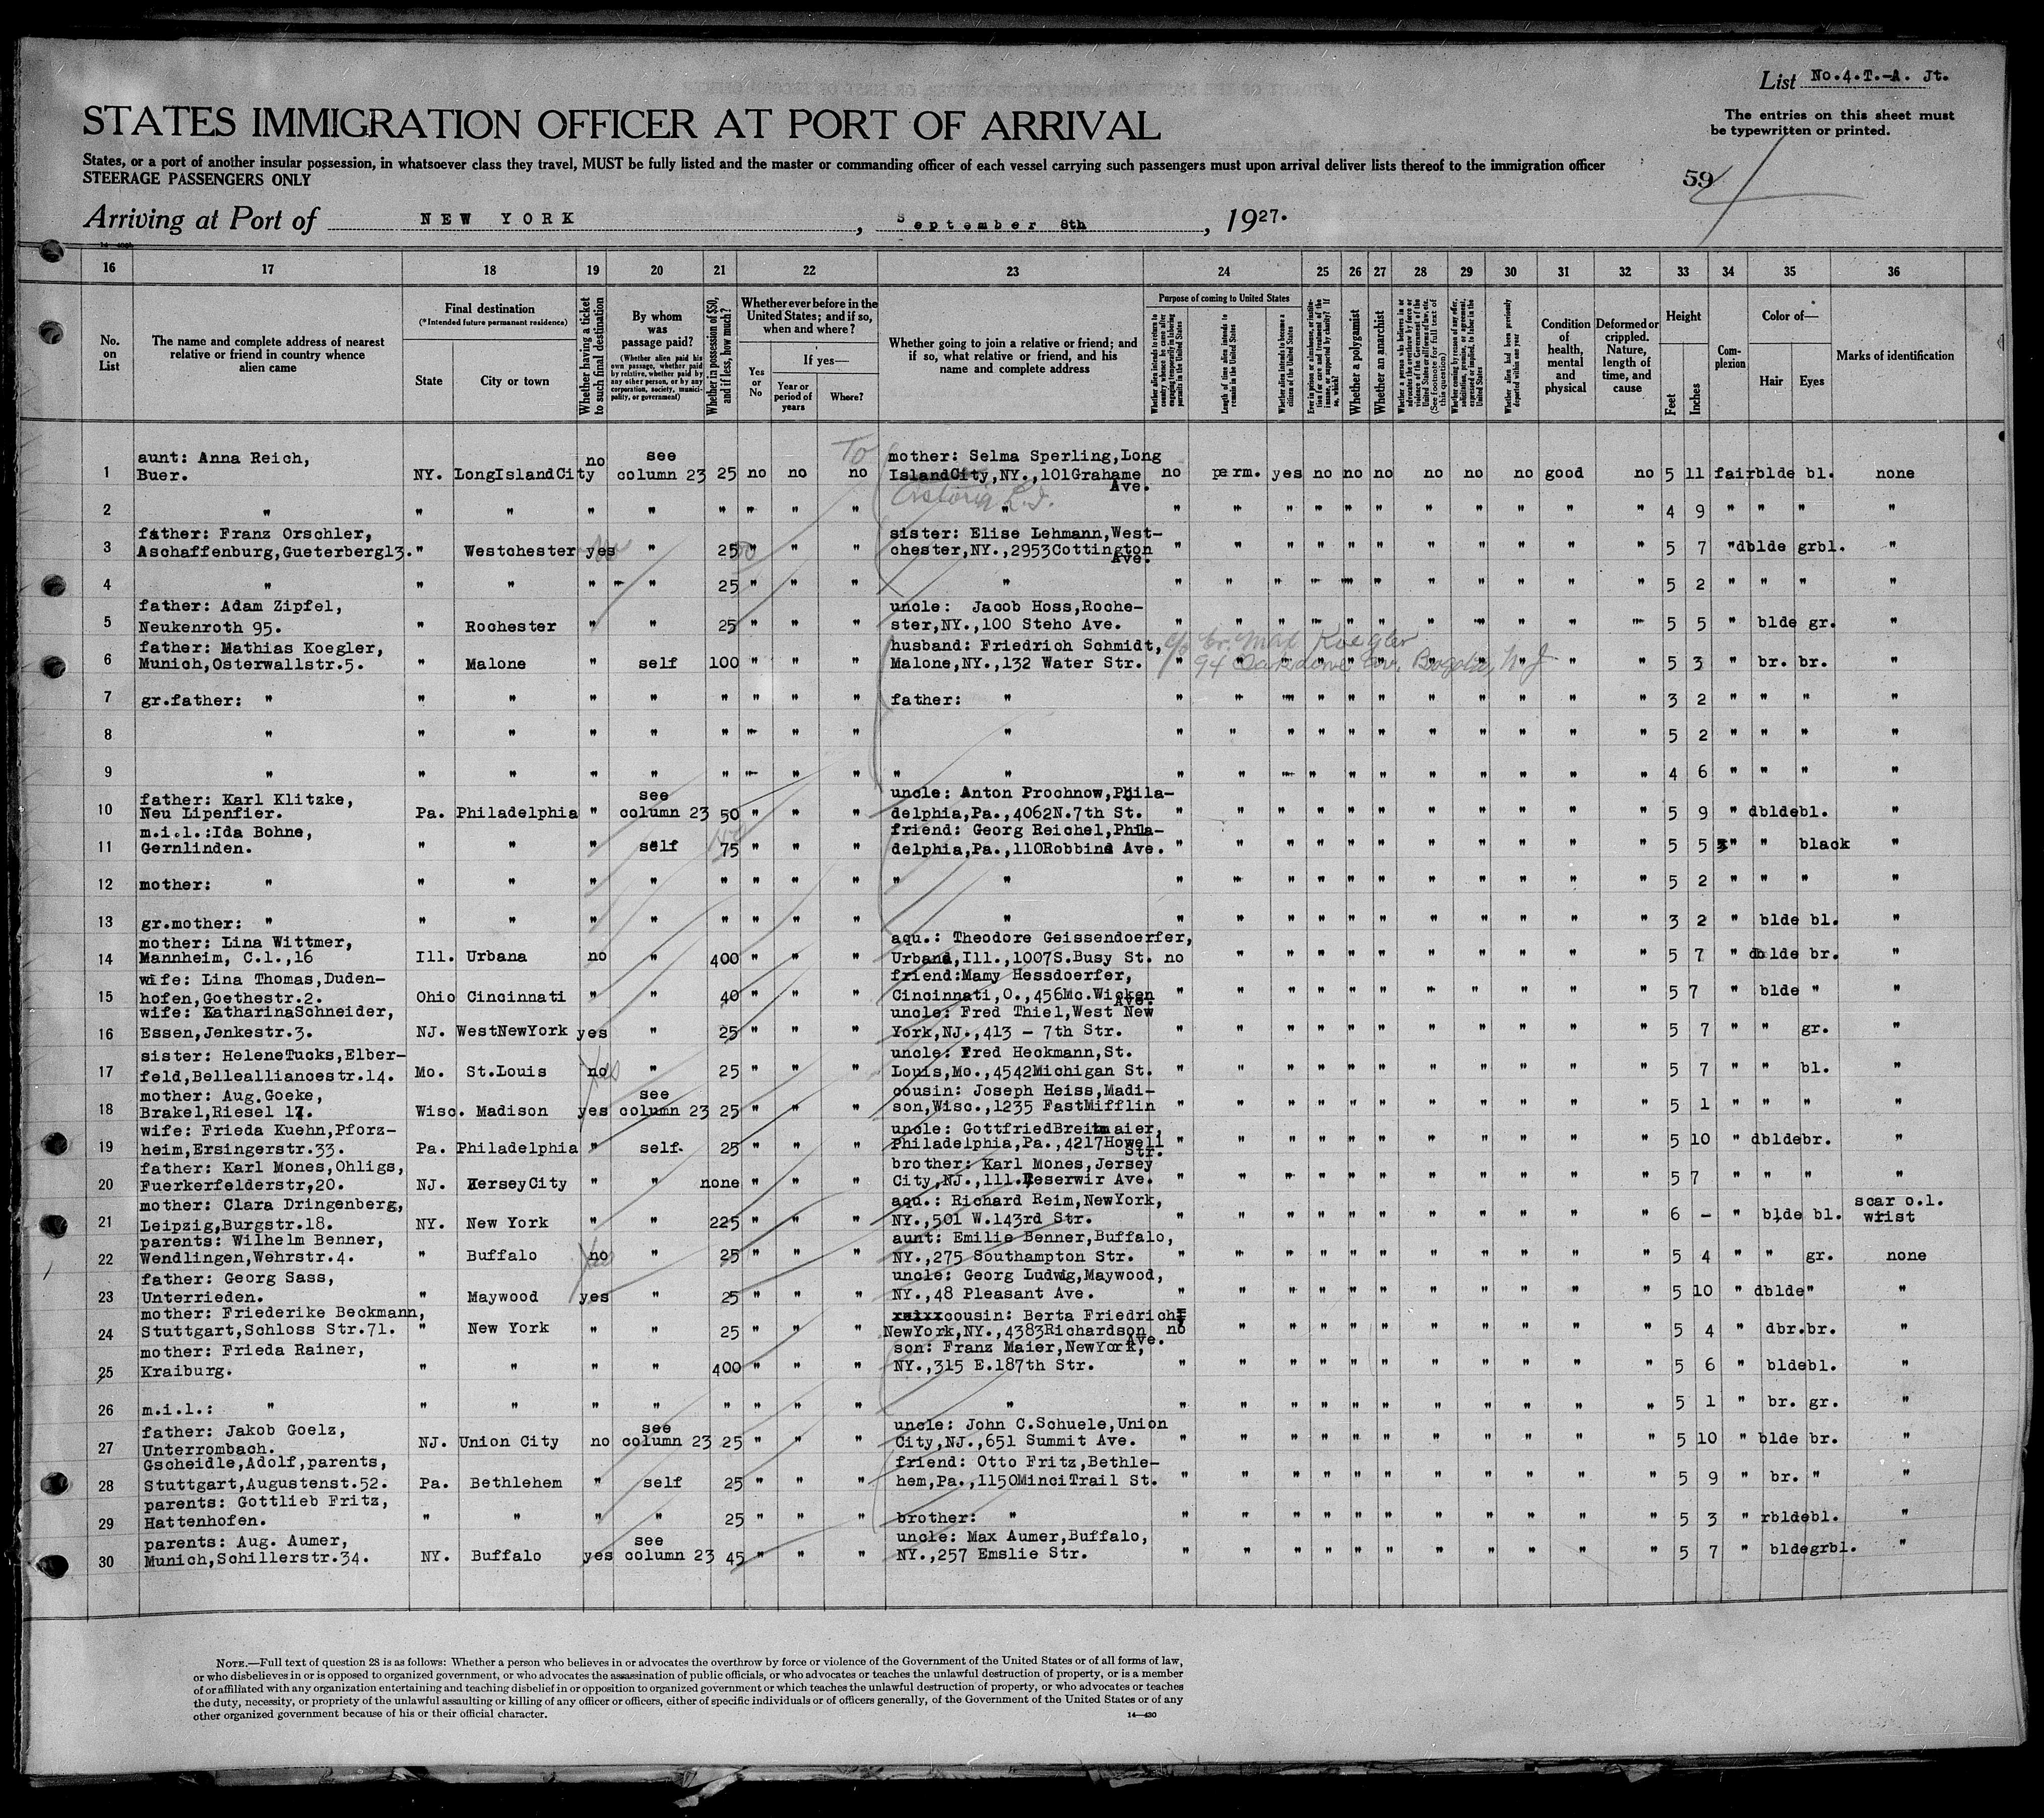 List No.4.T.-A. Jt.
STATES IMMIGRATION OFFICER AT PORT OF ARRIVAL
The entries on this sheet must
be typewritten or printed.
States, or a port of another insular possession, in whatsoever class they travel, MUST be fully listed and the master or commanding officer of each vessel carrying such passengers must upon arrival deliver lists thereof to the immigration officer
STEERAGE PASSENGERS ONLY
59
Arriving at Port of NEW YORK, September 8th, 1927.
16 17 18 19 20 21 22 23 24 25 26 27 28 29 30 31 32 33 34 35 36
No. on List
The name and complete address of nearest relative or friend in country whence alien came
Final destination
(*Intended future permanent residence)
State
City or town
Whether having a ticket to such final destination
By whom was passage paid?
(Whether alien paid his own passage, whether paid by relative, whether paid by any other person, or by any corporation, society, municipality, or government)
Whether in possession of $50, and if less, how much?
Whether ever before in the United States; and if so, when and where?
Yes or No
If yes—
Year or period of years
Where?
Whether going to join a relative or friend; and if so, what relative or friend, and his name and complete address
Purpose of coming to United States
Length of time alien intends to remain in the United States
Whether alien intends to become a citizen of the United States
Whether a polygamist
Whether an anarchist
Whether alien had been previously deported within one year
Condition of health, mental and physical
Deformed or crippled. Nature, length of time, and cause
Height
Feet
Inches
Complexion
Color of—
Hair
Eyes
Marks of identification
1 aunt: Anna Reich, Buer. NY. LongIslandCity no see column 23 25 no no no mother: Selma Sperling,Long IslandCity,NY.,101Grahame Ave. no perm. yes no no no no no no good no 5 11 fair blde bl. none
To
Astoria L.I.
2 " " " " " " " " " " " " " " " " " " " " " 4 9 " " " "
3 father: Franz Orschler, Aschaffenburg,Gueterberg13. " Westchester yes " 25 " " " sister: Elise Lehmann,West-chester,NY.,2953Cottington Ave. " " " " " " " " " " " 5 7 " dblde grbl. "
4 " " " " " 25 " " " " " " " " " " " " " " " 5 2 " " " "
5 father: Adam Zipfel, Neukenroth 95. " Rochester " " 25 " " " uncle: Jacob Hoss,Roche-ster,NY.,100 Steho Ave. " " " " " " " " " " " 5 5 " blde gr. "
6 father: Mathias Koegler, Munich,Osterwallstr.5. " Malone " self 100 " " " husband: Friedrich Schmidt, Malone,NY.,132 Water Str. " " " " " " " " " " " 5 3 " br. br. "
c/o br. Max Koegler
94 Ave, Bogota, N.J.
7 gr.father: " " " " " " " " " father: " " " " " " " " " " " " 3 2 " " " "
8 " " " " " " " " " " " " " " " " " " " " " 5 2 " " " "
9 " " " " " " " " " " " " " " " " " " " " " " 4 6 " " " "
10 father: Karl Klitzke, Neu Lipenfier. Pa. Philadelphia " see column 23 50 " " " uncle: Anton Prochnow,Phila-delphia,Pa.,4062N.7th St. " " " " " " " " " " " 5 9 " dblde bl. "
11 m.i.l.:Ida Bohne, Gernlinden. " " " self 75 " " " friend: Georg Reichel,Phila-delphia,Pa.,110Robbins Ave. " " " " " " " " " " " 5 5 " " black "
12 mother: " " " " " " " " " " " " " " " " " " " " " " " 5 2 " " " "
13 gr.mother: " " " " " " " " " " " " " " " " " " " " " " 3 2 " blde bl. "
14 mother: Lina Wittmer, Mannheim, C.1.,16 Ill. Urbana no " 400 " " " aqu.: Theodore Geissendoerfer, Urbana,Ill.,1007S.Busy St. no " " " " " " " " " " 5 7 " dblde br. "
15 wife: Lina Thomas,Duden-hofen,Goethestr.2. Ohio Cincinnati " " 40 " " " friend:Mamy Hessdoerfer, Cincinnati,O.,456Mc.Wicken Ave. " " " " " " " " " " " 5 7 " blde " "
16 wife: KatharinaSchneider, Essen,Jenkestr.3. NJ. WestNewYork yes " 25 " " " uncle: Fred Thiel,West New York,NJ.,413 - 7th Str. " " " " " " " " " " " 5 7 " " gr. "
17 sister: HeleneTucks,Elber-feld,Bellealliancestr.14. Mo. St.Louis no yes " 25 " " " uncle: Fred Heckmann,St. Louis,Mo.,4542Michigan St. " " " " " " " " " " " 5 7 " " bl. "
18 mother: Aug.Goeke, Brakel,Riesel 17. Wisc. Madison yes see column 23 25 " " " cousin: Joseph Heiss,Madi-son,Wisc.,1235 FastMifflin " " " " " " " " " " " 5 1 " " " "
19 wife: Frieda Kuehn,Pforz-heim,Ersingerstr.33. Pa. Philadelphia " self. 25 " " " uncle: GottfriedBreitmaier, Philadelphia,Pa.,4217Howell Str. " " " " " " " " " " " 5 10 " dblde br. "
20 father: Karl Mones,Ohligs, Fuerkerfelderstr,20. NJ. JerseyCity " " none " " " brother: Karl Mones,Jersey City,NJ.,111.Reserwir Ave. " " " " " " " " " " " 5 7 " " " "
21 mother: Clara Dringenberg, Leipzig,Burgstr.18. NY. New York " " 225 " " " aqu.: Richard Reim,NewYork, NY.,501 W.143rd Str. " " " " " " " " " " " 6 - " blde bl. scar o.l. wrist
22 parents: Wilhelm Benner, Wendlingen,Wehrstr.4. " Buffalo no yes " 25 " " " aunt: Emilie Benner,Buffalo, NY.,275 Southampton Str. " " " " " " " " " " " 5 4 " " gr. none
23 father: Georg Sass, Unterrieden. " Maywood yes " 25 " " " uncle: Georg Ludwig,Maywood, NY.,48 Pleasant Ave. " " " " " " " " " " " 5 10 " dblde " "
24 mother: Friederike Beckmann, Stuttgart,Schloss Str.71. " New York " " 25 " " " cousin: Berta Friedrich, NewYork,NY.,4383Richardson Ave. no " " " " " " " " " " 5 4 " dbr. br. "
25 mother: Frieda Rainer, Kraiburg. " " " " 400 " " " son: Franz Maier,NewYork, NY.,315 E.187th Str. " " " " " " " " " " " 5 6 " blde bl. "
26 m.i.l.: " " " " " " " " " " " " " " " " " " " " " 5 1 " br. gr. "
27 father: Jakob Goelz, Unterrombach. NJ. Union City no see column 23 25 " " " uncle: John C.Schuele,Union City,NJ.,651 Summit Ave. " " " " " " " " " " " 5 10 " blde br. "
28 Gscheidle,Adolf,parents, Stuttgart,Augustenst.52. Pa. Bethlehem " self 25 " " " friend: Otto Fritz,Bethle-hem,Pa.,1150MinciTrail St. " " " " " " " " " " " 5 9 " br. " "
29 parents: Gottlieb Fritz, Hattenhofen. " " " " 25 " " " brother: " " " " " " " " " " " " 5 3 " rblde bl. "
30 parents: Aug. Aumer, Munich,Schillerstr.34. NY. Buffalo yes see column 23 45 " " " uncle: Max Aumer,Buffalo, NY.,257 Emslie Str. " " " " " " " " " " " 5 7 " blde grbl. "
NOTE.—Full text of question 28 is as follows: Whether a person who believes in or advocates the overthrow by force or violence of the Government of the United States or of all forms of law,
or who disbelieves in or is opposed to organized government, or who advocates the assassination of public officials, or who advocates or teaches the unlawful destruction of property, or is a member
of or affiliated with any organization entertaining and teaching disbelief in or opposition to organized government or which teaches the unlawful destruction of property, or who advocates or teaches
the duty, necessity, or propriety of the unlawful assaulting or killing of any officer or officers, either of specific individuals or of officers generally, of the Government of the United States or of any
other organized government because of his or their official character.
14—430